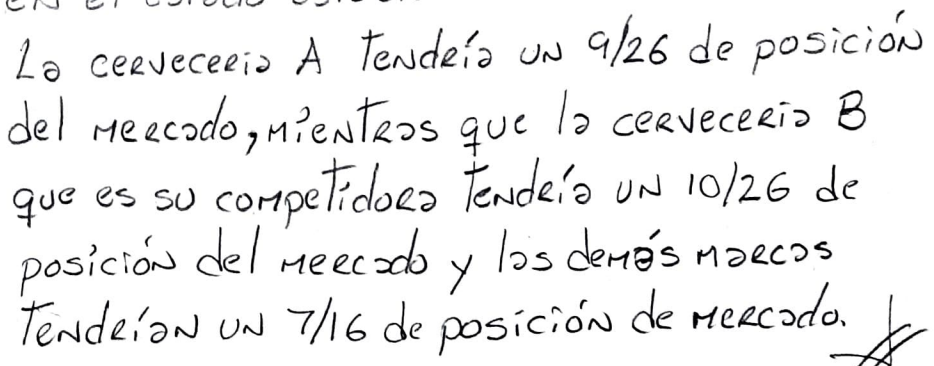 La cervecería A tendría un 9/26 de posición
del mercado, mientras que la cervecería B
que es su competidora tendría un 10/26 de
posición del mercado y las demás marcas
tendrían un 7/16 de posición de mercado.